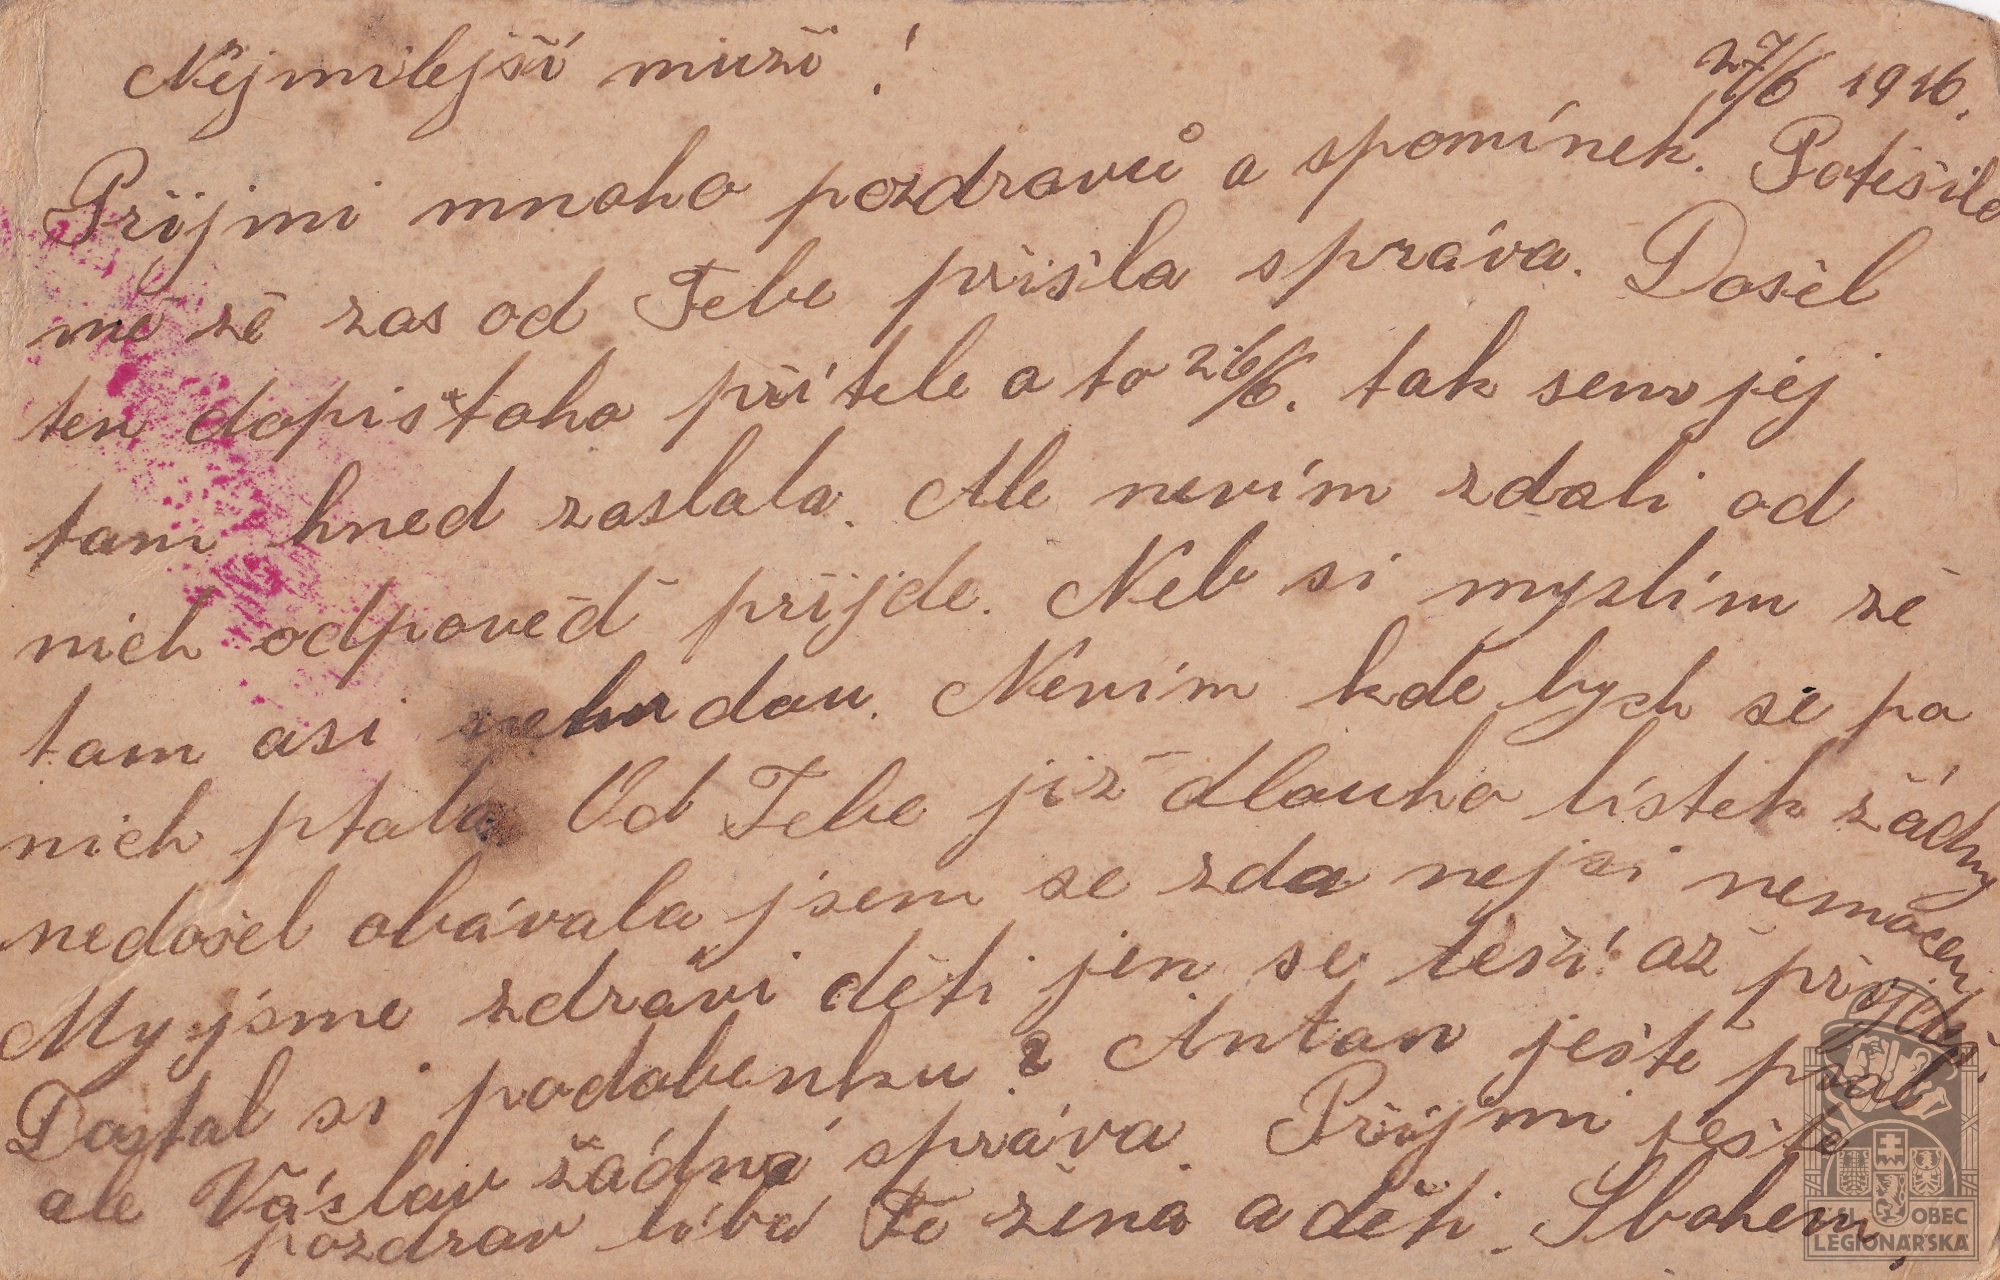 27/6 1916.
Nejmilejší muži !
Přijmi mnoho pozdravů a spomínek. Potěšilo
mě že zas od Tebe přišla správa. Došel
ten dopis toho přítele a to 26/6. tak sem jej
tam hned zaslala. Ale nevím zdali od
nich odpověď přijde. Neb si myslím že
tam asi nebudou. Nevím kde bych se po
nich ptala. Od Tebe již dlouho lístek žádny
nedošel obávala jsem se zda nejsi nemocen
My jsme zdrávi děti jen se těší až přijdeš.
Dostal si podobenku ? Anton ještě psal
ale Václav žádná správa. Přijmi ještě
pozdrav líbá Te žena a děti. Sbohem,
ČSL. OBEC
LEGIONÁŘSKÁ